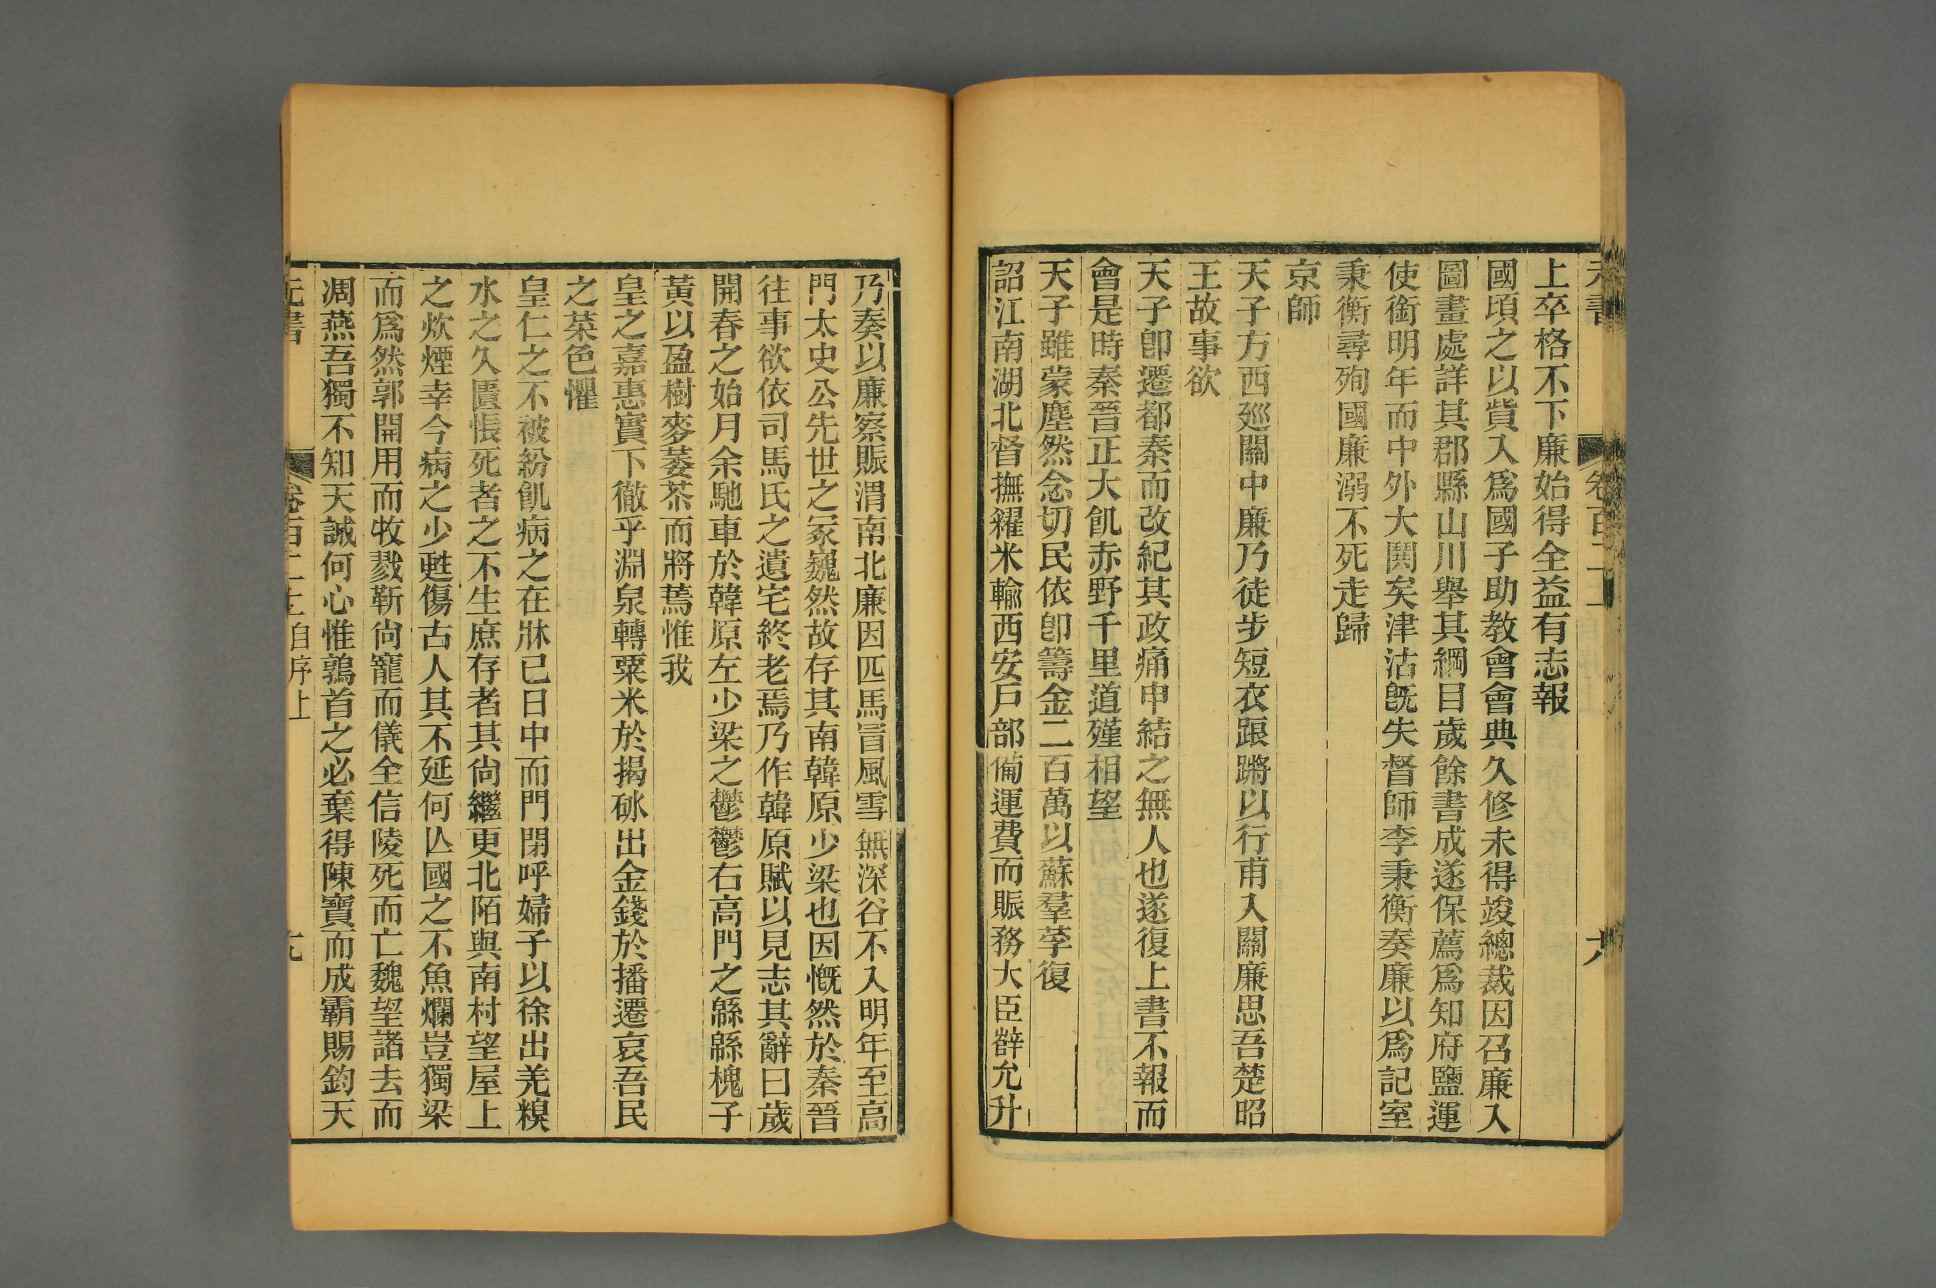 上卒格不下廉始得全益有志報
國頃之以貲入爲國子助教會會典久修未得竣總裁因召廉入
圖畫處詳其郡縣山川舉其綱目歲餘書成遂保薦爲知府鹽運
使銜明年而中外大鬨矣津沽旣失督師李秉衡奏廉以爲記室
秉衡尋殉國廉溺不死走歸
京師
天子方西巡關中廉乃徒步短衣踉蹡以行甫入關廉思吾楚昭
王故事欲
天子卽遷都秦而改紀其政痛申結之無人也遂復上書不報而
會是時秦晉正大飢赤野千里道殣相望
天子雖蒙塵然念切民依卽籌金二百萬以蘇羣莩復
詔江南湖北督撫糴米輸西安戸部備運費而賑務大臣辥允升
乃奏以廉察賑渭南北廉因匹馬冒風雪無深谷不入明年至高
門太史公先世之冢巍然故存其南韓原少梁也因慨然於秦晉
往事欲依司馬氏之遺宅終老焉乃作韓原賦以見志其辭曰歲
開春之始月余馳車於韓原左少梁之鬱鬱右高門之緜緜槐子
黃以盈樹麥萎苶而將蔫惟我
皇之嘉惠實下徹乎淵泉轉粟米於揭砅出金錢於播遷哀吾民
之菜色懼
皇仁之不被紛飢病之在牀已日中而門閉呼婦子以徐出羌糗
水之久匱悵死者之不生庶存者其尙繼更北陌與南村望屋上
之炊煙幸今病之少甦傷古人其不延何亾國之不魚爛豈獨梁
而爲然郭開用而牧戮靳尙寵而儀全信陵死而亡魏望諸去而
凋燕吾獨不知天誠何心惟鶉首之必棄得陳寶而成霸賜鈞天
元書
卷百二
自序上